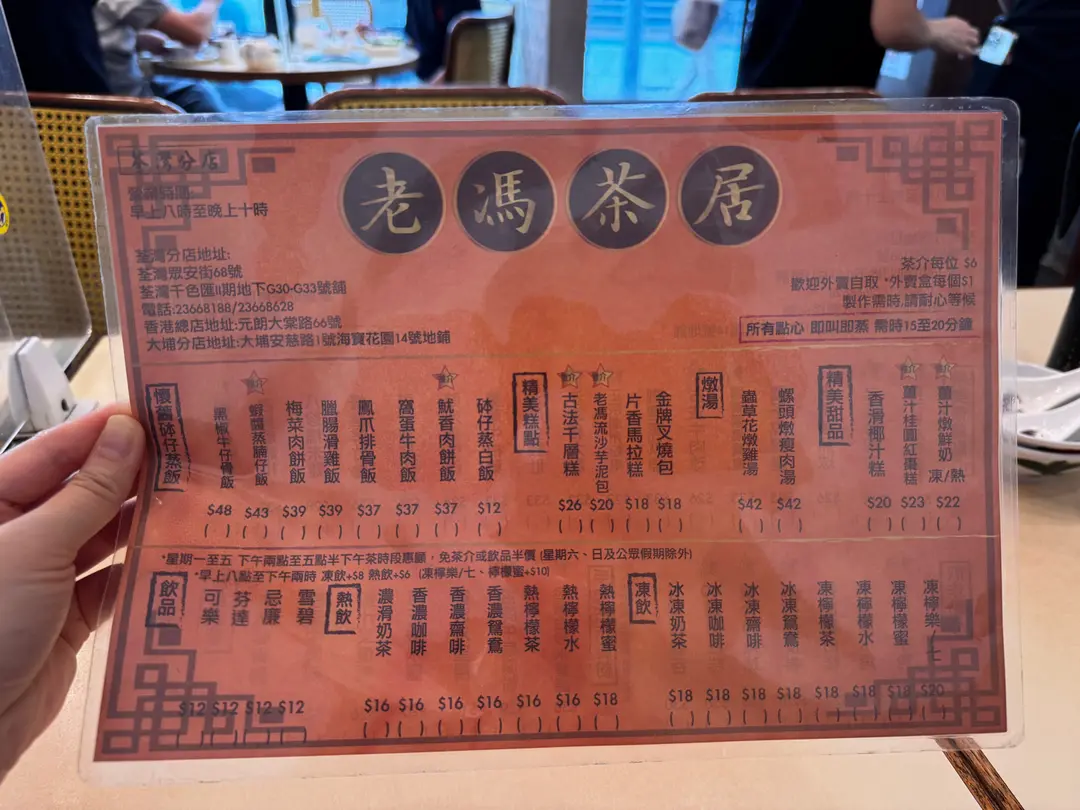 老馮茶居
荃灣分店
營業時間:
早上八時至晚上十時
荃灣分店地址:
荃灣眾安街68號
荃灣千色匯II期地下G30-G33號舖
電話:23668188/23668628
香港總店地址:元朗大棠路66號
大埔分店地址:大埔安慈路1號海寶花園14號地舖
茶介每位 $6
歡迎外賣自取 *外賣盒每個$1
製作需時,請耐心等候
所有點心 即叫即蒸 需時15至20分鐘
懷舊砵仔蒸飯
黑椒牛仔骨飯 $48 ( )
蝦醬蒸腩仔飯 $43 ( )
梅菜肉餅飯 $39 ( )
臘腸滑雞飯 $39 ( )
鳳爪排骨飯 $37 ( )
窩蛋牛肉飯 $37 ( )
魷香肉餅飯 $37 ( )
砵仔蒸白飯 $12 ( )
精美糕點
古法千層糕 $26 ( )
老馮流沙芋泥包 $20 ( )
片香馬拉糕 $18 ( )
金牌叉燒包 $18 ( )
燉湯
蟲草花燉雞湯 $42 ( )
螺頭燉瘦肉湯 $42 ( )
精美甜品
香滑椰汁糕 $20 ( )
薑汁桂圓紅棗糕 $23 ( )
薑汁燉鮮奶 凍/熱 $22 ( )
*星期一至五 下午兩點至五點半下午茶時段惠顧，免茶介或飲品半價 (星期六、日及公眾假期除外)
*早上八點至下午兩時 凍飲+$8 熱飲+$6 (凍檸樂/七、檸檬蜜+$10)
飲品
可樂 $12 ( )
芬達 $12 ( )
忌廉 $12 ( )
雪碧 $12 ( )
熱飲
濃滑奶茶 $16 ( )
香濃咖啡 $16 ( )
香濃齋啡 $16 ( )
香濃鴛鴦 $16 ( )
熱檸檬茶 $16 ( )
熱檸檬水 $16 ( )
熱檸檬蜜 $18 ( )
凍飲
冰凍奶茶 $18 ( )
冰凍咖啡 $18 ( )
冰凍齋啡 $18 ( )
冰凍鴛鴦 $18 ( )
凍檸檬茶 $18 ( )
凍檸檬水 $18 ( )
凍檸檬蜜 $18 ( )
凍檸樂/七 $20 ( )